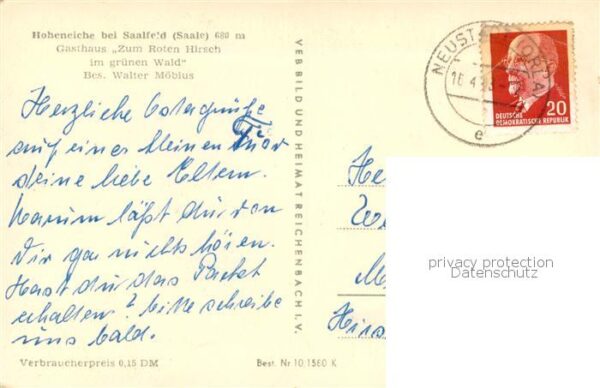 Hoheneiche bei Saalfeld (Saale) 680 m
Gasthaus „Zum Roten Hirsch
im grünen Wald"
Bes. Walter Möbius
Herzliche Ostergrüße
auf einer kleinen
deine liebe Eltern.
Warum läßt du von
Dir gar nichts hören.
Hast du das Packet
erhalten? bitte schreibe
uns bald.
Verbraucherpreis 0,15 DM
VEB BILD UND HEIMAT REICHENBACH I. V.
Best. Nr 10/1560 K
NEUSTADT (ORLA)
16.4.
e
20
DEUTSCHE
DEMOKRATISCHE REPUBLIK
privacy protection
Datenschutz